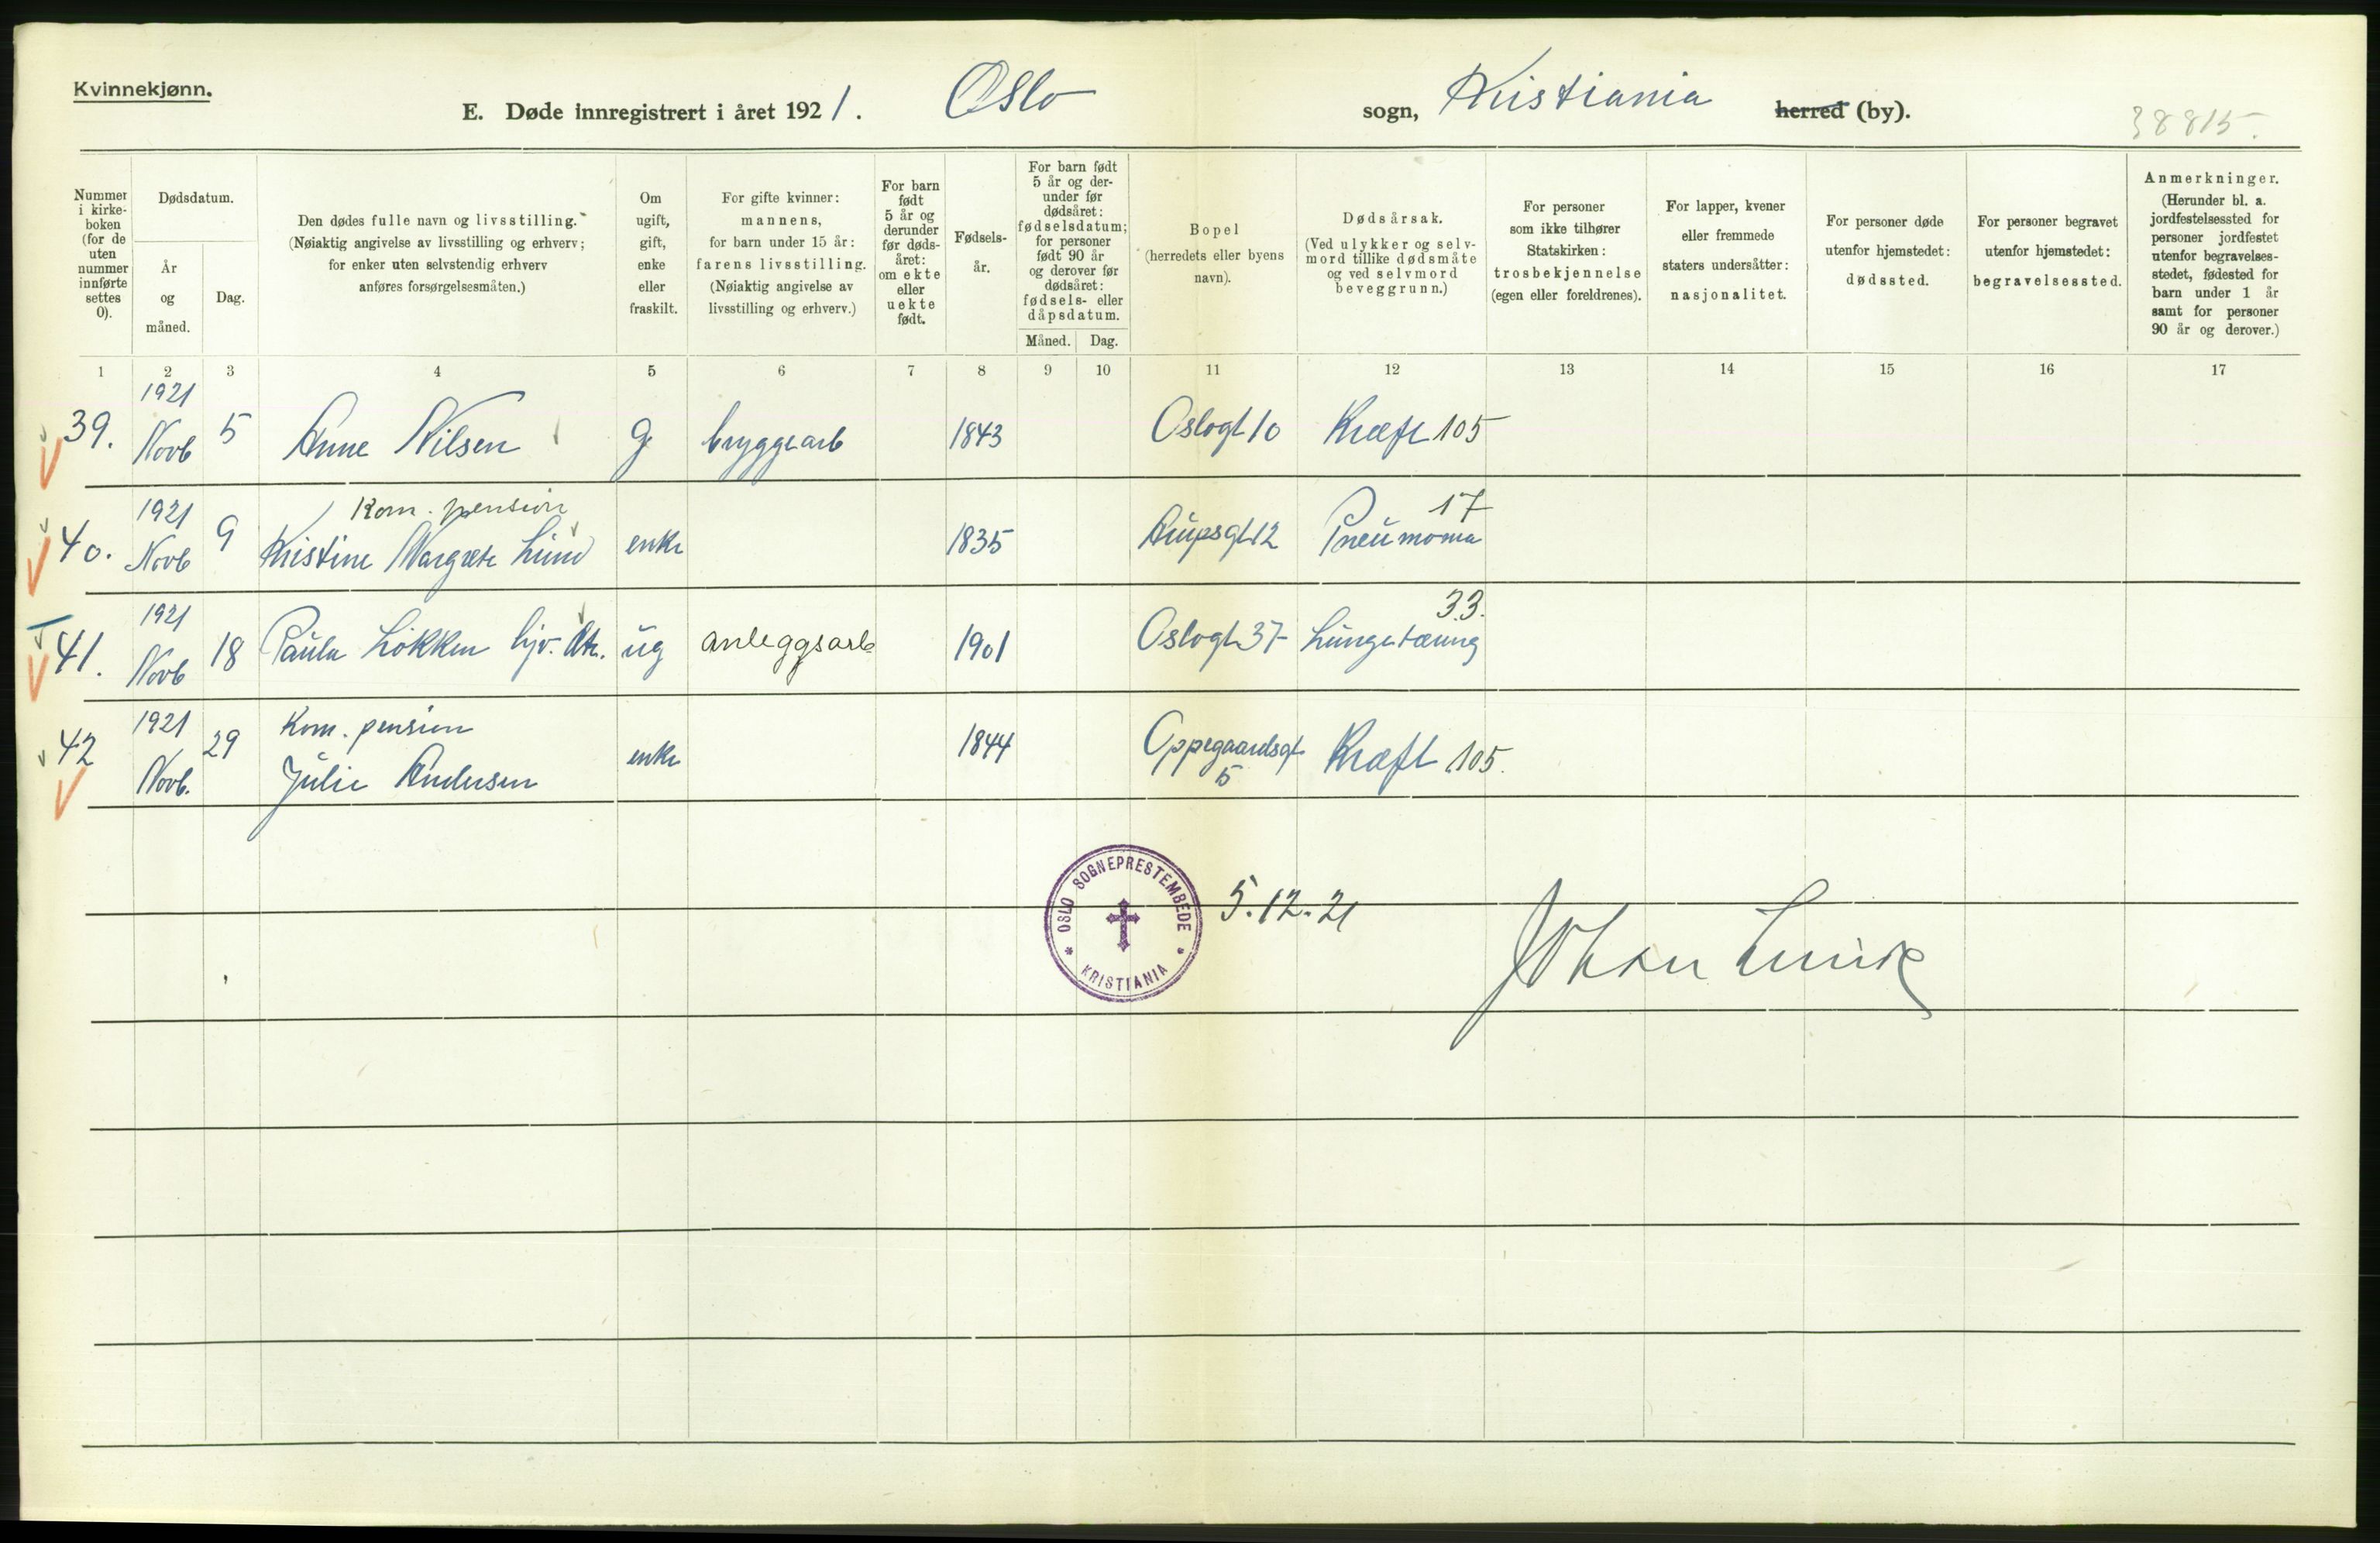 Kvinnekjønn.
E. Døde innregistrert i året 1921. Oslo sogn, Kristiania herred (by).
38815.
Nummer i kirke-boken (for de uten nummer innførte settes 0).
Dødsdatum.
År og måned.
Dag.
Den dødes fulle navn og livsstilling.
(Nøiaktig angivelse av livsstilling og erhverv;
for enker uten selvstendig erhverv
anføres forsørgelsesmåten.)
Om
ugift,
gift,
enke
eller
fraskilt.
For gifte kvinner:
mannens,
for barn under 15 år:
farens livsstilling.
(Nøiaktig angivelse av
livsstilling og erhverv.)
For barn
født
5 år og
derunder
før døds-
året:
om ekte
eller
uekte
født.
Fødsels-
år.
For barn født
5 år og der-
under før
dødsåret:
fødselsdatum;
for personer
født 90 år
og derover før
dødsåret:
fødsels- eller
dåpsdatum.
Måned. Dag.
Bopel
(herredets eller byens
navn).
Dødsårsak.
(Ved ulykker og selv-
mord tillike dødsmåte
og ved selvmord
beveggrunn.)
For personer
som ikke tilhører
Statskirken:
trosbekjennelse
(egen eller foreldrenes).
For lapper, kvener
eller fremmede
staters undersåtter:
nasjonalitet.
For personer døde
utenfor hjemstedet:
dødssted.
For personer begravet
utenfor hjemstedet:
begravelsessted.
Anmerkninger.
(Herunder bl. a.
jordfestelsessted for
personer jordfestet
utenfor begravelses-
stedet, fødested for
barn under 1 år
samt for personer
90 år og derover.)
1 2 3 4 5 6 7 8 9 10 11 12 13 14 15 16 17
1921
39. Novb 5 Anne Nilsen g bryggearb 1843 Oslogt 10 Kræft 105
1921 Kom. pension 17
40. Novb 9 Kristine Margrete Lund enke 1835 Arupsgt 12 Pneumonia
1921 33.
41. Novb 18 Paula Løkken hjv. dtr. ug anleggsarb 1901 Oslogt 37 Lungetæring
1921 Kom. pension
42 Novb. 29 Julie Andersen enke 1844 Oppegaardsgt 5 Kræft 105.
OSLO SOGNEPRESTEMBEDE
KRISTIANIA
5.12.21
Johan Lunde